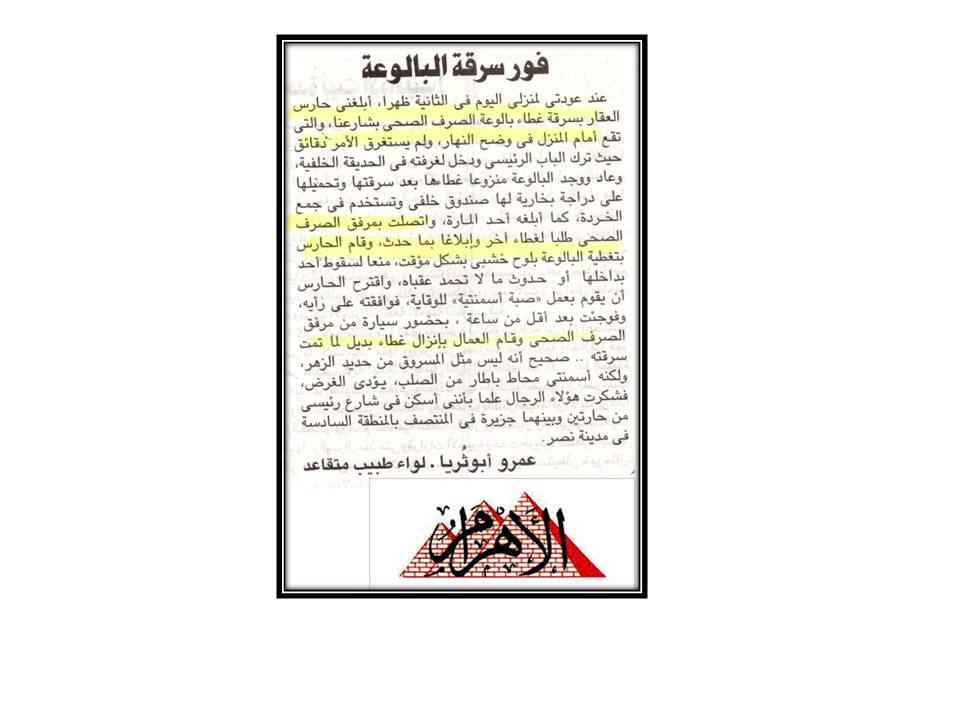 فور سرقة البالوعة
عند عودتى لمنزلى اليوم فى الثانية ظهرا، أبلغنى حارس
العقار بسرقة غطاء بالوعة الصرف الصحى بشارعنا، والتى
تقع أمام المنزل فى وضح النهار، ولم يستغرق الأمر دقائق
حيث ترك الباب الرئيسى ودخل لغرفته فى الحديقة الخلفية،
وعاد ووجد البالوعة منزوعا غطاءها بعد سرقتها وتحميلها
على دراجة بخارية لها صندوق خلفى وتستخدم فى جمع
الخردة، كما أبلغه أحد المارة، واتصلت بمرفق الصرف
الصحى طلبا لغطاء آخر وإبلاغا بما حدث، وقام الحارس
بتغطية البالوعة بلوح خشبى بشكل مؤقت، منعا لسقوط أحد
بداخلها أو حدوث ما لا تحمد عقباه، واقترح الحارس
أن يقوم بعمل «صبة أسمنتية» للوقاية، فوافقته على رأيه،
وفوجئت بعد أقل من ساعة ، بحضور سيارة من مرفق
الصرف الصحى وقام العمال بإنزال غطاء بديل لما تمت
سرقته .. صحيح أنه ليس مثل المسروق من حديد الزهر،
ولكنه أسمنتى محاط باطار من الصلب، يؤدى الغرض،
فشكرت هؤلاء الرجال علما بأننى أسكن فى شارع رئيسى
من حارتين وبينهما جزيرة فى المنتصف بالمنطقة السادسة
فى مدينة نصر.
عمرو أبوثريا . لواء طبيب متقاعد
الأهرام